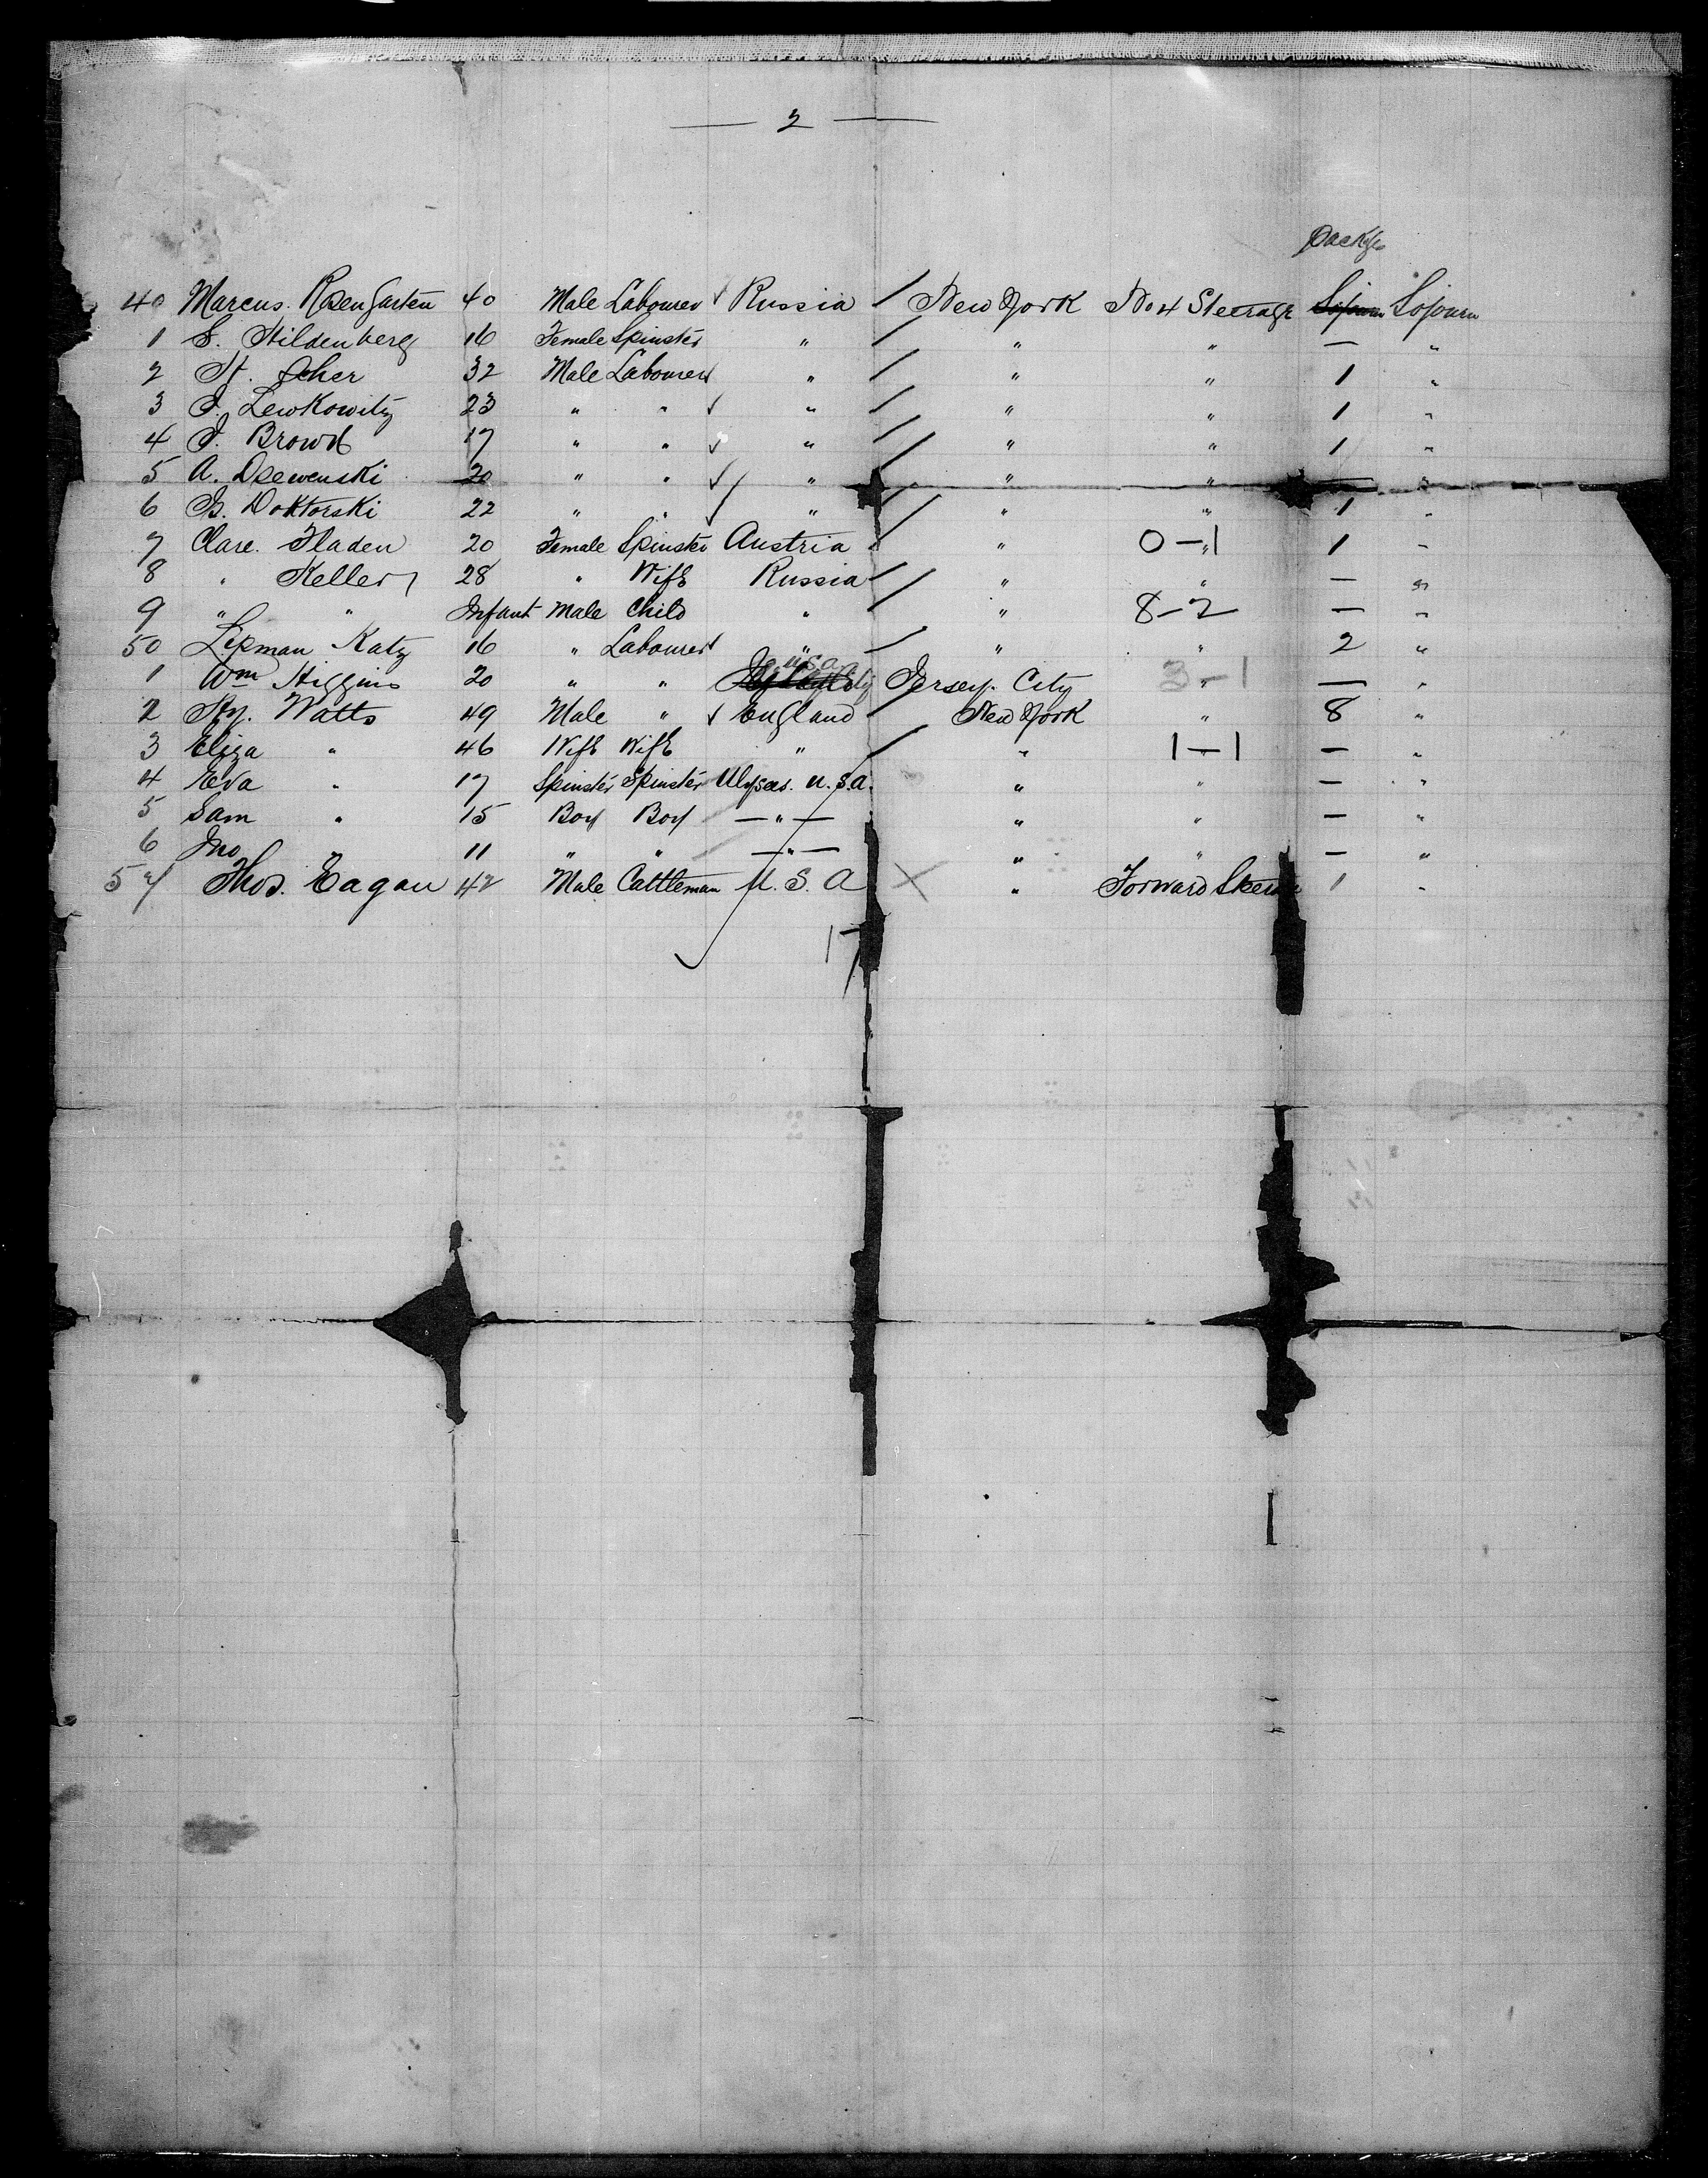 — 2 —
Packgs
40 Marcus. Rosengarten 40 Male Labourer ✓ Russia / New York No 4 Steerage Sojourn
1 S. Hildenberg 16 Female Spinster " / " " — "
2 H. Scher 32 Male Labourer " / " " 1 "
3 I. Lewkowitz 23 " " ✓ " / " " 1 "
4 I. Browd 17 " " ✓ " / " " 1 "
5 A. Dsewenski 20 " " ✓ " / " " — "
6 B. Doktorski 22 " " ✓ " / " " 1 "
7 Clare. Fladen 20 Female Spinster Austria / " 0-1 " 1 "
8 " Keller 28 " Wife Russia / " " — "
9 " " Infant Male Child " / " 8-2 — "
50 Lipman Katz 16 " Labourer " / " " 2 "
1 Wm Higgins 20 " " U.S.a. Jersey. City 3-1 " — "
2 Hy. Watts 49 Male " ✓ England / New York " 8 "
3 Eliza " 46 Wife Wife " / " 1-1 — "
4 Eva " 17 Spinster Spinster Ulysses. U.S.a. " " — "
5 Sam " 15 Boy Boy — " — " " — "
6 Jno " 11 " " — " — " " — "
57 Thos. Eagan 42 Male Cattleman U.S.A X " Forward 1 "
17